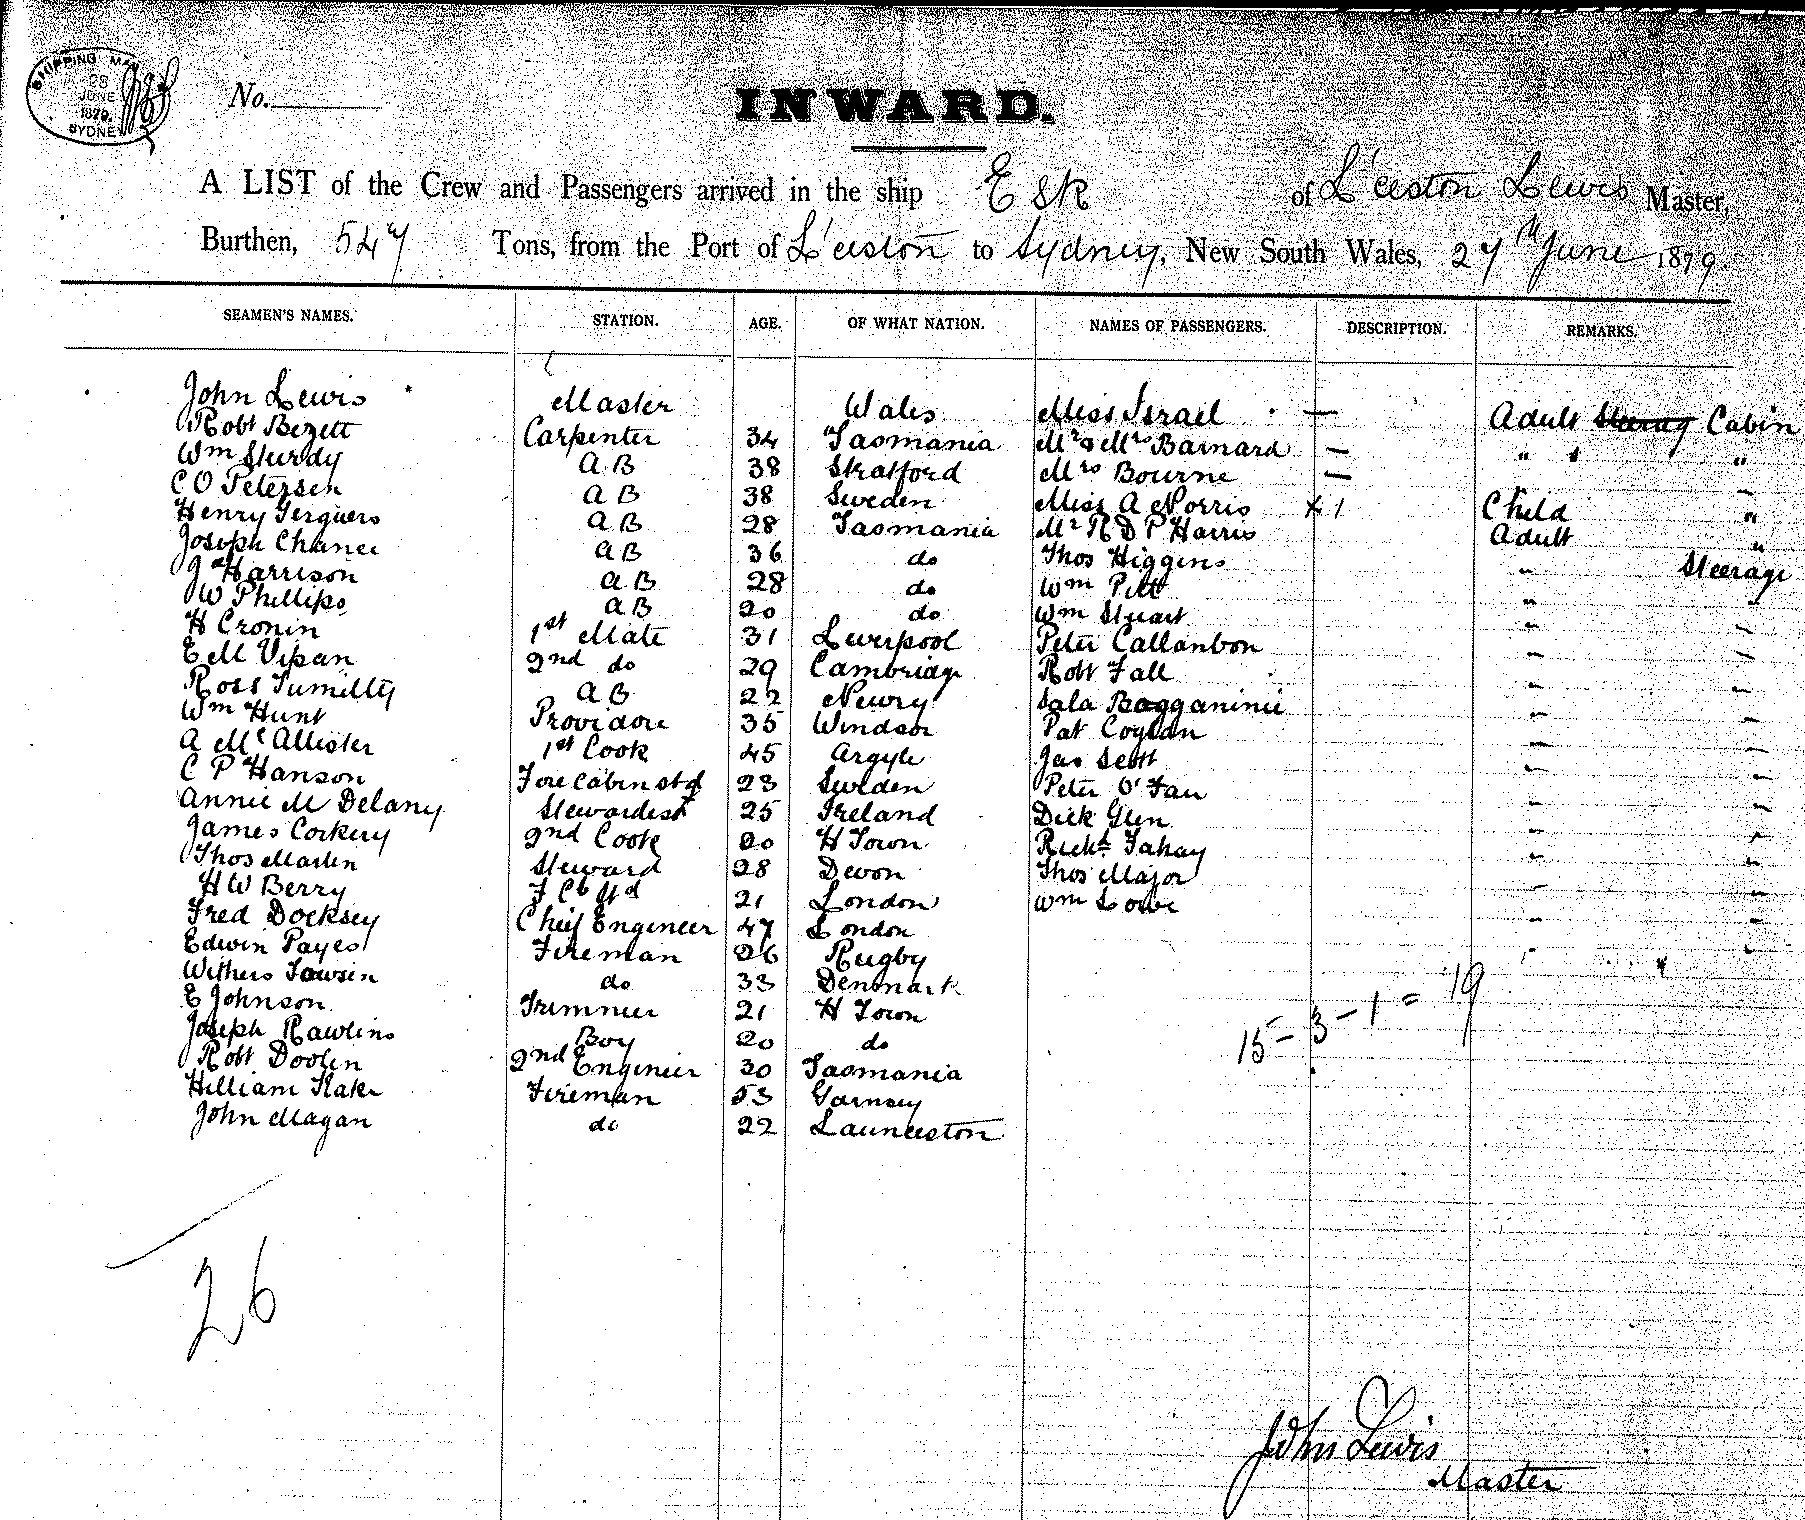 SHIPPING MAS
28
JUNE
1879
SYDNEY
No.
INWARD.
A LIST of the Crew and Passengers arrived in the ship Esk of L'ceston Lewis Master,
Burthen, 547 Tons, from the Port of L'ceston to Sydney, New South Wales, 27th June 1879
SEAMEN'S NAMES. STATION. AGE. OF WHAT NATION. NAMES OF PASSENGERS. DESCRIPTION. REMARKS.
John Lewis Master Wales Miss Israel — Adult Steerag Cabin
Robt Bezett Carpenter 34 Tasmania Mr & Mrs Barnard — " " "
Wm Sturdy A B 38 Stratford Mrs Bourne — "
C O Petersen A B 38 Sweden Miss A Norris x 1 Child "
Henry Ferguers A B 28 Tasmania Mr R D P Harris Adult "
Joseph Chance A B 36 do Thos Higgins " Steerage
J Harrison A B 28 do Wm Pitt "
W Phillips A B 20 do Wm Stuart " "
H Cronin 1st Mate 31 Liverpool Peter Callanbon " "
E M Vipan 2nd do 29 Cambridge Robt Fall " "
Ross Tumilty A B 22 Newry Sala Bagganinii " "
Wm Hunt Providore 35 Windsor Pat Coglan " "
A McAllister 1st Cook 45 Argyle Jas Scott " "
C P Hanson Fore Cabin std 23 Sweden Peter O'Fau " "
Annie M Delany Stewardess 25 Ireland Dick Glen " "
James Corkery 2nd Cook 20 H Town Richd Fahay " "
Thos Martin Steward 28 Devon Thos Major " "
H W Berry F Cb Std 21 London Wm Lowe " "
Fred Docksey Chief Engineer 47 London
Edwin Payes Fireman 26 Rugby
Withers Towsin do 33 Denmark
E Johnson Trimmer 21 H Town
Joseph Rawlins Boy 20 do
15 - 3 - 1 = 19
Robt Doolen 2nd Engineer 30 Tasmania
William Kaker Fireman 53 Garnsey
John Magan do 22 Launceston
26
John Lewis
Master